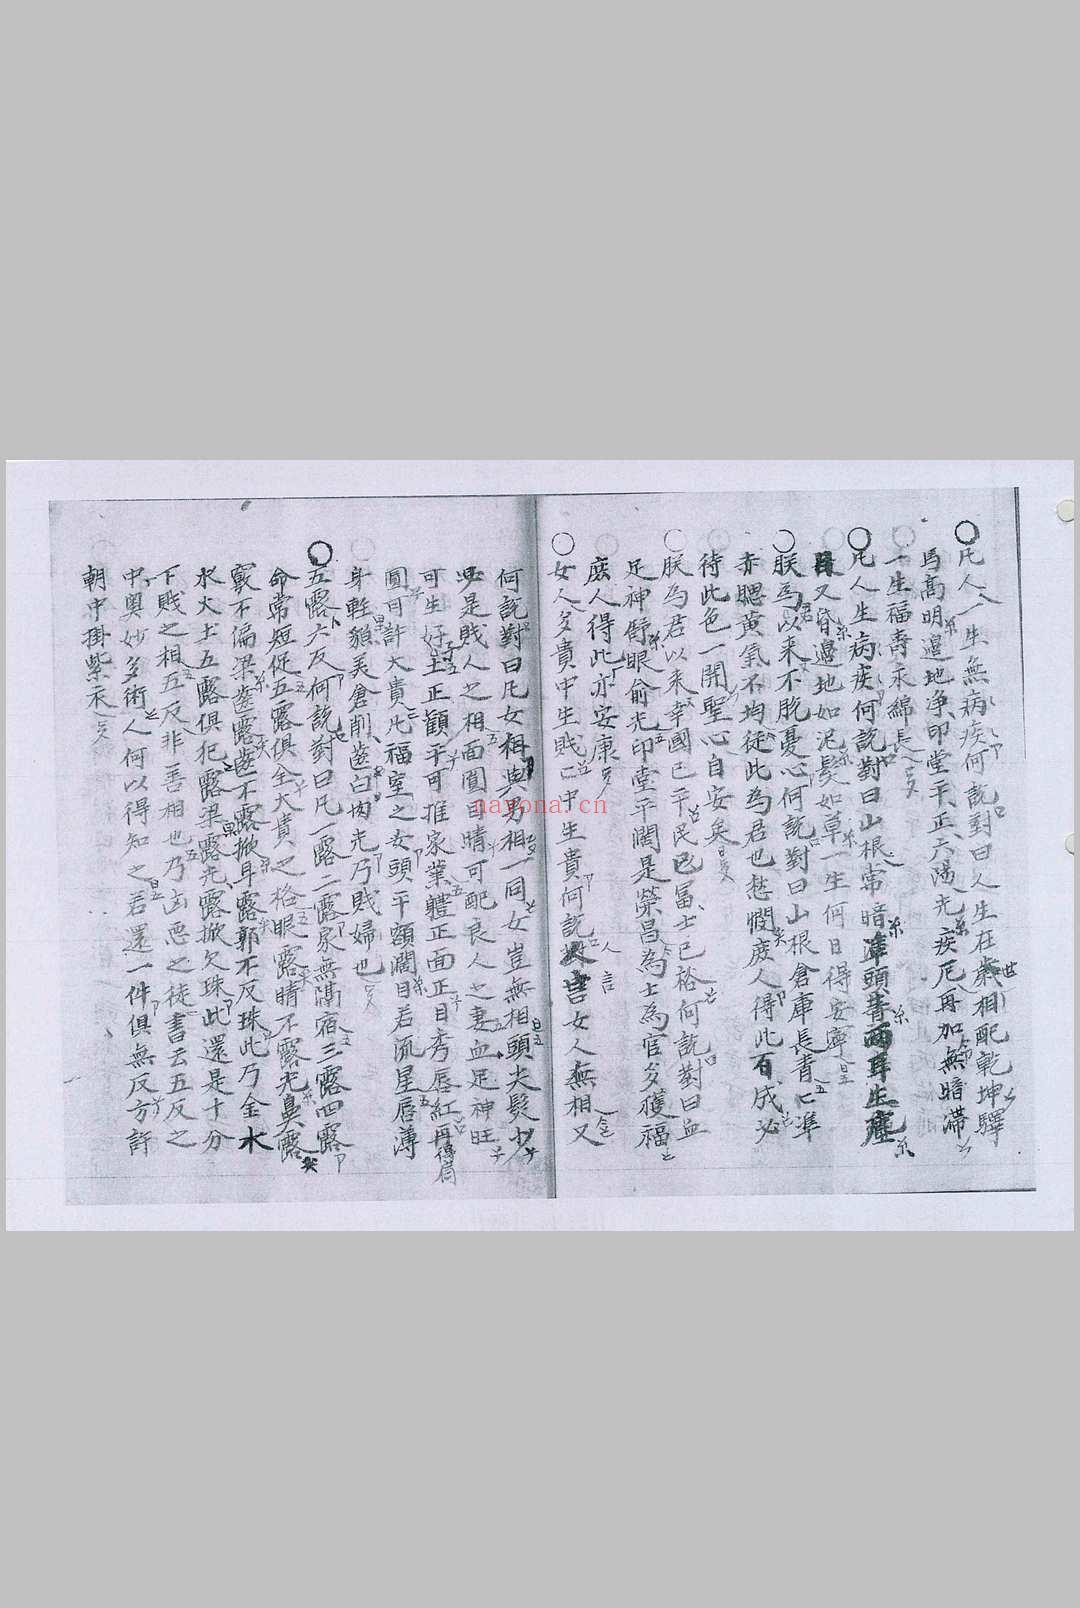 ○凡人一生無病疾何説對曰人生在歲相配乾坤驛
馬高明邉地净印堂平正六陽光疾厄再加無暗滯
一生福壽永綿長
○凡人生病疾何説對曰山根常暗準頭青両耳生塵
又昏邉地如泥髮如草一生何日得安寧
○朕為以来不脱憂心何説對曰山根倉庫長青準
赤腮黄氣不均徒此為君也愁憫庶人得此百成必
待此色一開聖心自安矣
○朕為君以来幸國已平民已冨士已裕何説對曰血
足神舒眼俞光印堂平闊是榮昌為士為官多獲福
庶人得此亦安康
○女人多貴中生賎中生貴何説書言女人無相又
何説對曰凡女相與男相一同女豈無相頭尖髮少
是賎人之相面圓目晴可配良人之妻血足神旺
可生好子土正顴平可推家業體正面正目秀唇紅再得肩
圓可許大貴凡福室之女頭平額濶目若流星唇薄
身軽貌美倉削齒白肉光乃賎婦也
○五露六反何説對曰凡一露二露家無隔宿三露四露
命常短促五露俱全大貴之格眼露睛不露光鼻露
竅不偏梁齒露齒不露掀耳露郭不反珠此乃金水
火土五露俱犯露梁露光露掀欠珠此還是十分
下賎之相五反非善相也乃凶悪之徒書云五反之
中奧妙多術人何以得知之若還一件俱無反方許
朝中掛紫衣
nayona.cn